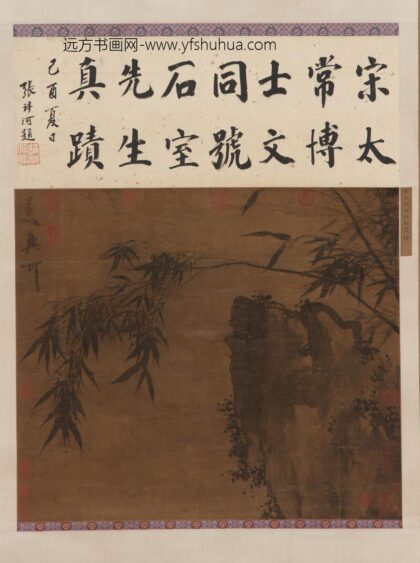 远方书画网-www.yfshuhua.com
宋太
常博
士文
同號
石室
先生
真蹟
己酉夏日
張祥河題
與可